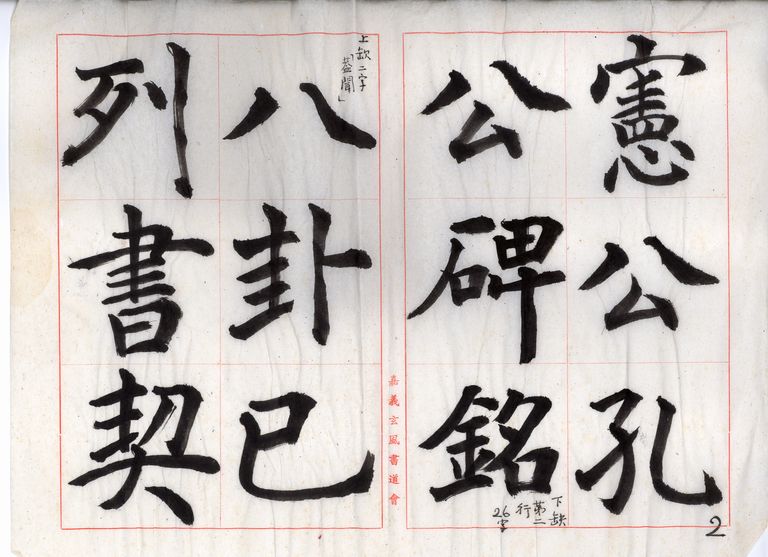 憲公孔
公碑銘
下缺
第二
行
26字
2
嘉義玄風書道會
上缺二字
「蓋聞」
八卦已
列書契